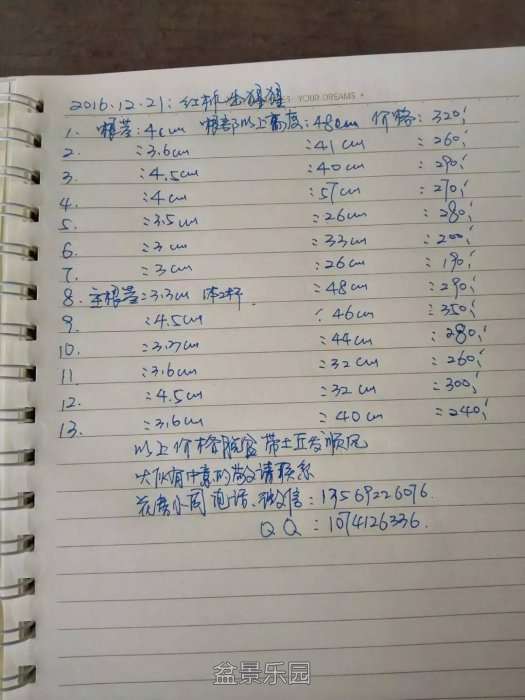 2016.12.21: 红
YOUR DREAMS
1. 根茎:4cm 根部以上高度:48cm 价格:320
2. :3.6cm :41cm :260
3. :4.5cm :40cm :290
4. :4cm :57cm :270
5. :3.5cm :26cm :280
6. :3cm :33cm :200
7. :3cm :26cm :190
8. 主根茎:3.3cm :48cm :290
9. :4.5cm :46cm :350
10. :3.7cm :44cm :280
11. :3.6cm :32cm :260
12. :4.5cm :32cm :300
13. :3.6cm :40cm :240
以上价格脱盆带土发顺风
大伙有中意的敬请联系
小周 电话、微信:13569226076.
QQ :1074126336.
盆景乐园